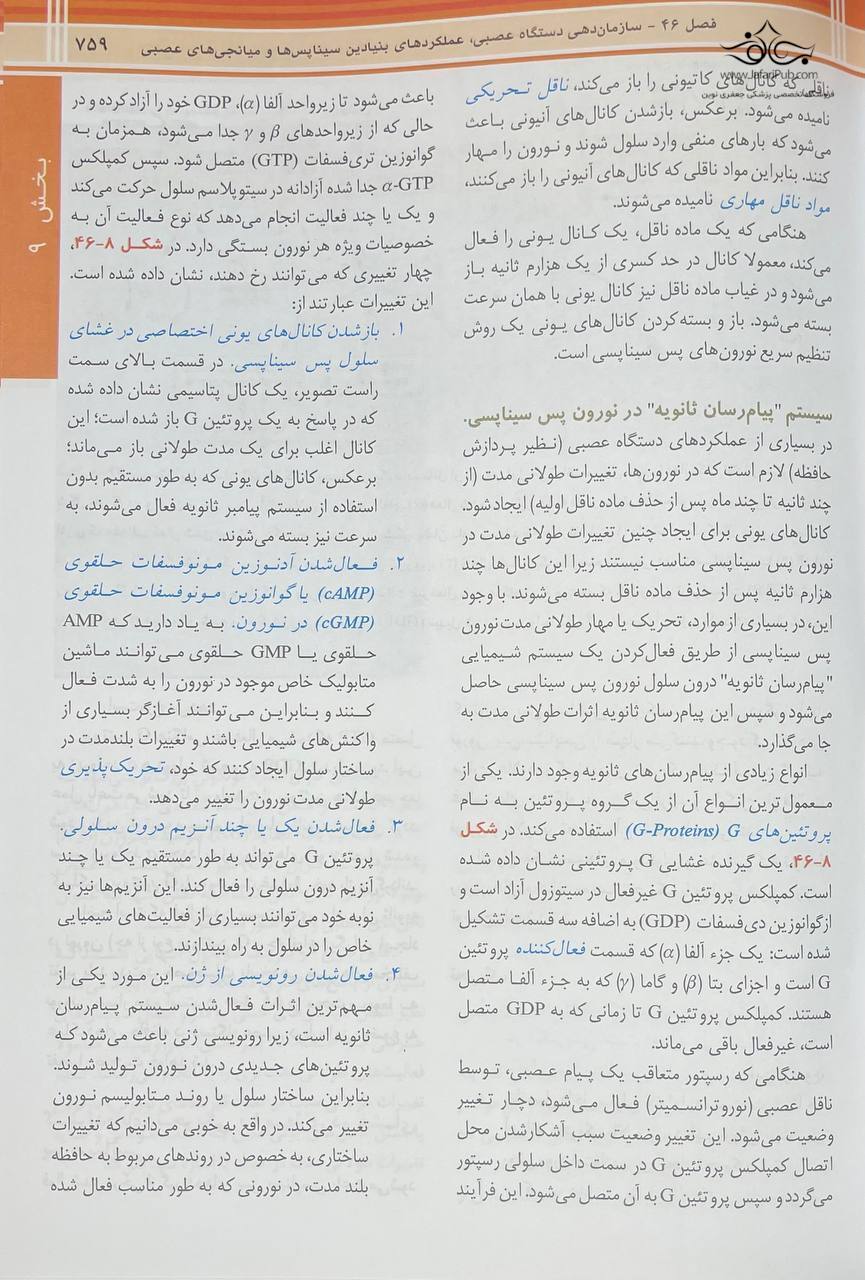 فصل ۴۶ - سازمان‌دهی دستگاه عصبی، عملکردهای بنیادین سیناپس‌ها و میانجی‌های عصبی
۷۵۹
www.JafariPub.com
بخش ۹
ناقل که کانال‌های کاتیونی را باز می‌کند، ناقل تحریکی
نامیده می‌شود. برعکس، بازشدن کانال‌های آنیونی باعث
می‌شود که بارهای منفی وارد سلول شوند و نورون را مهار
کنند. بنابراین مواد ناقلی که کانال‌های آنیونی را باز می‌کنند،
مواد ناقل مهاری نامیده می‌شوند.
هنگامی که یک ماده ناقل، یک کانال یونی را فعال
می‌کند، معمولا کانال در حد کسری از یک هزارم ثانیه باز
می‌شود و در غیاب ماده ناقل نیز کانال یونی با همان سرعت
بسته می‌شود. باز و بسته کردن کانال‌های یونی یک روش
تنظیم سریع نورون‌های پس سیناپسی است.
سیستم "پیام‌رسان ثانویه" در نورون پس سیناپسی.
در بسیاری از عملکردهای دستگاه عصبی (نظیر پردازش
حافظه) لازم است که در نورون‌ها، تغییرات طولانی مدت (از
چند ثانیه تا چند ماه پس از حذف ماده ناقل اولیه) ایجاد شود.
کانال‌های یونی برای ایجاد چنین تغییرات طولانی مدت در
نورون پس سیناپسی مناسب نیستند زیرا این کانال‌ها چند
هزارم ثانیه پس از حذف ماده ناقل بسته می‌شوند. با وجود
این، در بسیاری از موارد، تحریک یا مهار طولانی مدت نورون
پس سیناپسی از طریق فعال‌کردن یک سیستم شیمیایی
"پیام‌رسان ثانویه" درون سلول نورون پس سیناپسی حاصل
می‌شود و سپس این پیام‌رسان ثانویه اثرات طولانی مدت به
جا می‌گذارد.
انواع زیادی از پیام‌رسان‌های ثانویه وجود دارند. یکی از
معمول‌ترین انواع آن از یک گروه پروتئین به نام
پروتئین‌های G (G-Proteins) استفاده می‌کند. در شکل
۸-۴۶، یک گیرنده غشایی G پروتئینی نشان داده شده
است. کمپلکس پروتئین G غیرفعال در سیتوزول آزاد است و
از گوانوزین دی‌فسفات (GDP) به اضافه سه قسمت تشکیل
شده است: یک جزء آلفا (α) که قسمت فعال‌کننده پروتئین
G است و اجزای بتا (β) و گاما (γ) که به جزء آلفا متصل
هستند. کمپلکس پروتئین G تا زمانی که به GDP متصل
است، غیرفعال باقی می‌ماند.
هنگامی که رسپتور متعاقب یک پیام عصبی، توسط
ناقل عصبی (نوروترانسمیتر) فعال می‌شود، دچار تغییر
وضعیت می‌شود. این تغییر وضعیت سبب آشکارشدن محل
اتصال کمپلکس پروتئین G در سمت داخل سلولی رسپتور
می‌گردد و سپس پروتئین G به آن متصل می‌شود. این فرآیند
باعث می‌شود تا زیرواحد آلفا (α)، GDP خود را آزاد کرده و در
حالی که از زیرواحدهای β و γ جدا می‌شود، همزمان به
گوانوزین تری‌فسفات (GTP) متصل شود. سپس کمپلکس
α-GTP جدا شده آزادانه در سیتوپلاسم سلول حرکت می‌کند
و یک یا چند فعالیت انجام می‌دهد که نوع فعالیت آن به
خصوصیات ویژه هر نورون بستگی دارد. در شکل ۸-۴۶،
چهار تغییری که می‌توانند رخ دهند، نشان داده شده است.
این تغییرات عبارتند از:
۱. بازشدن کانال‌های یونی اختصاصی در غشای
سلول پس سیناپسی. در قسمت بالای سمت
راست تصویر، یک کانال پتاسیمی نشان داده شده
که در پاسخ به یک پروتئین G باز شده است؛ این
کانال اغلب برای یک مدت طولانی باز می‌ماند؛
برعکس، کانال‌های یونی که به طور مستقیم بدون
استفاده از سیستم پیامبر ثانویه فعال می‌شوند، به
سرعت نیز بسته می‌شوند.
۲. فعال‌شدن آدنوزین مونوفسفات حلقوی
(cAMP) یا گوانوزین مونوفسفات حلقوی
(cGMP) در نورون. به یاد دارید که AMP
حلقوی یا GMP حلقوی می‌توانند ماشین
متابولیک خاص موجود در نورون را به شدت فعال
کنند و بنابراین می‌توانند آغازگر بسیاری از
واکنش‌های شیمیایی باشند و تغییرات بلندمدت در
ساختار سلول ایجاد کنند که خود، تحریک‌پذیری
طولانی مدت نورون را تغییر می‌دهد.
۳. فعال‌شدن یک یا چند آنزیم درون سلولی.
پروتئین G می‌تواند به طور مستقیم یک یا چند
آنزیم درون سلولی را فعال کند. این آنزیم‌ها نیز به
نوبه خود می‌توانند بسیاری از فعالیت‌های شیمیایی
خاص را در سلول به راه بیندازند.
۴. فعال‌شدن رونویسی از ژن. این مورد یکی از
مهم‌ترین اثرات فعال‌شدن سیستم پیام‌رسان
ثانویه است، زیرا رونویسی ژنی باعث می‌شود که
پروتئین‌های جدیدی درون نورون تولید شوند.
بنابراین ساختار سلول یا روند متابولیسم نورون
تغییر می‌کند. در واقع به خوبی می‌دانیم که تغییرات
ساختاری، به خصوص در روندهای مربوط به حافظه
بلند مدت، در نورونی که به طور مناسب فعال شده